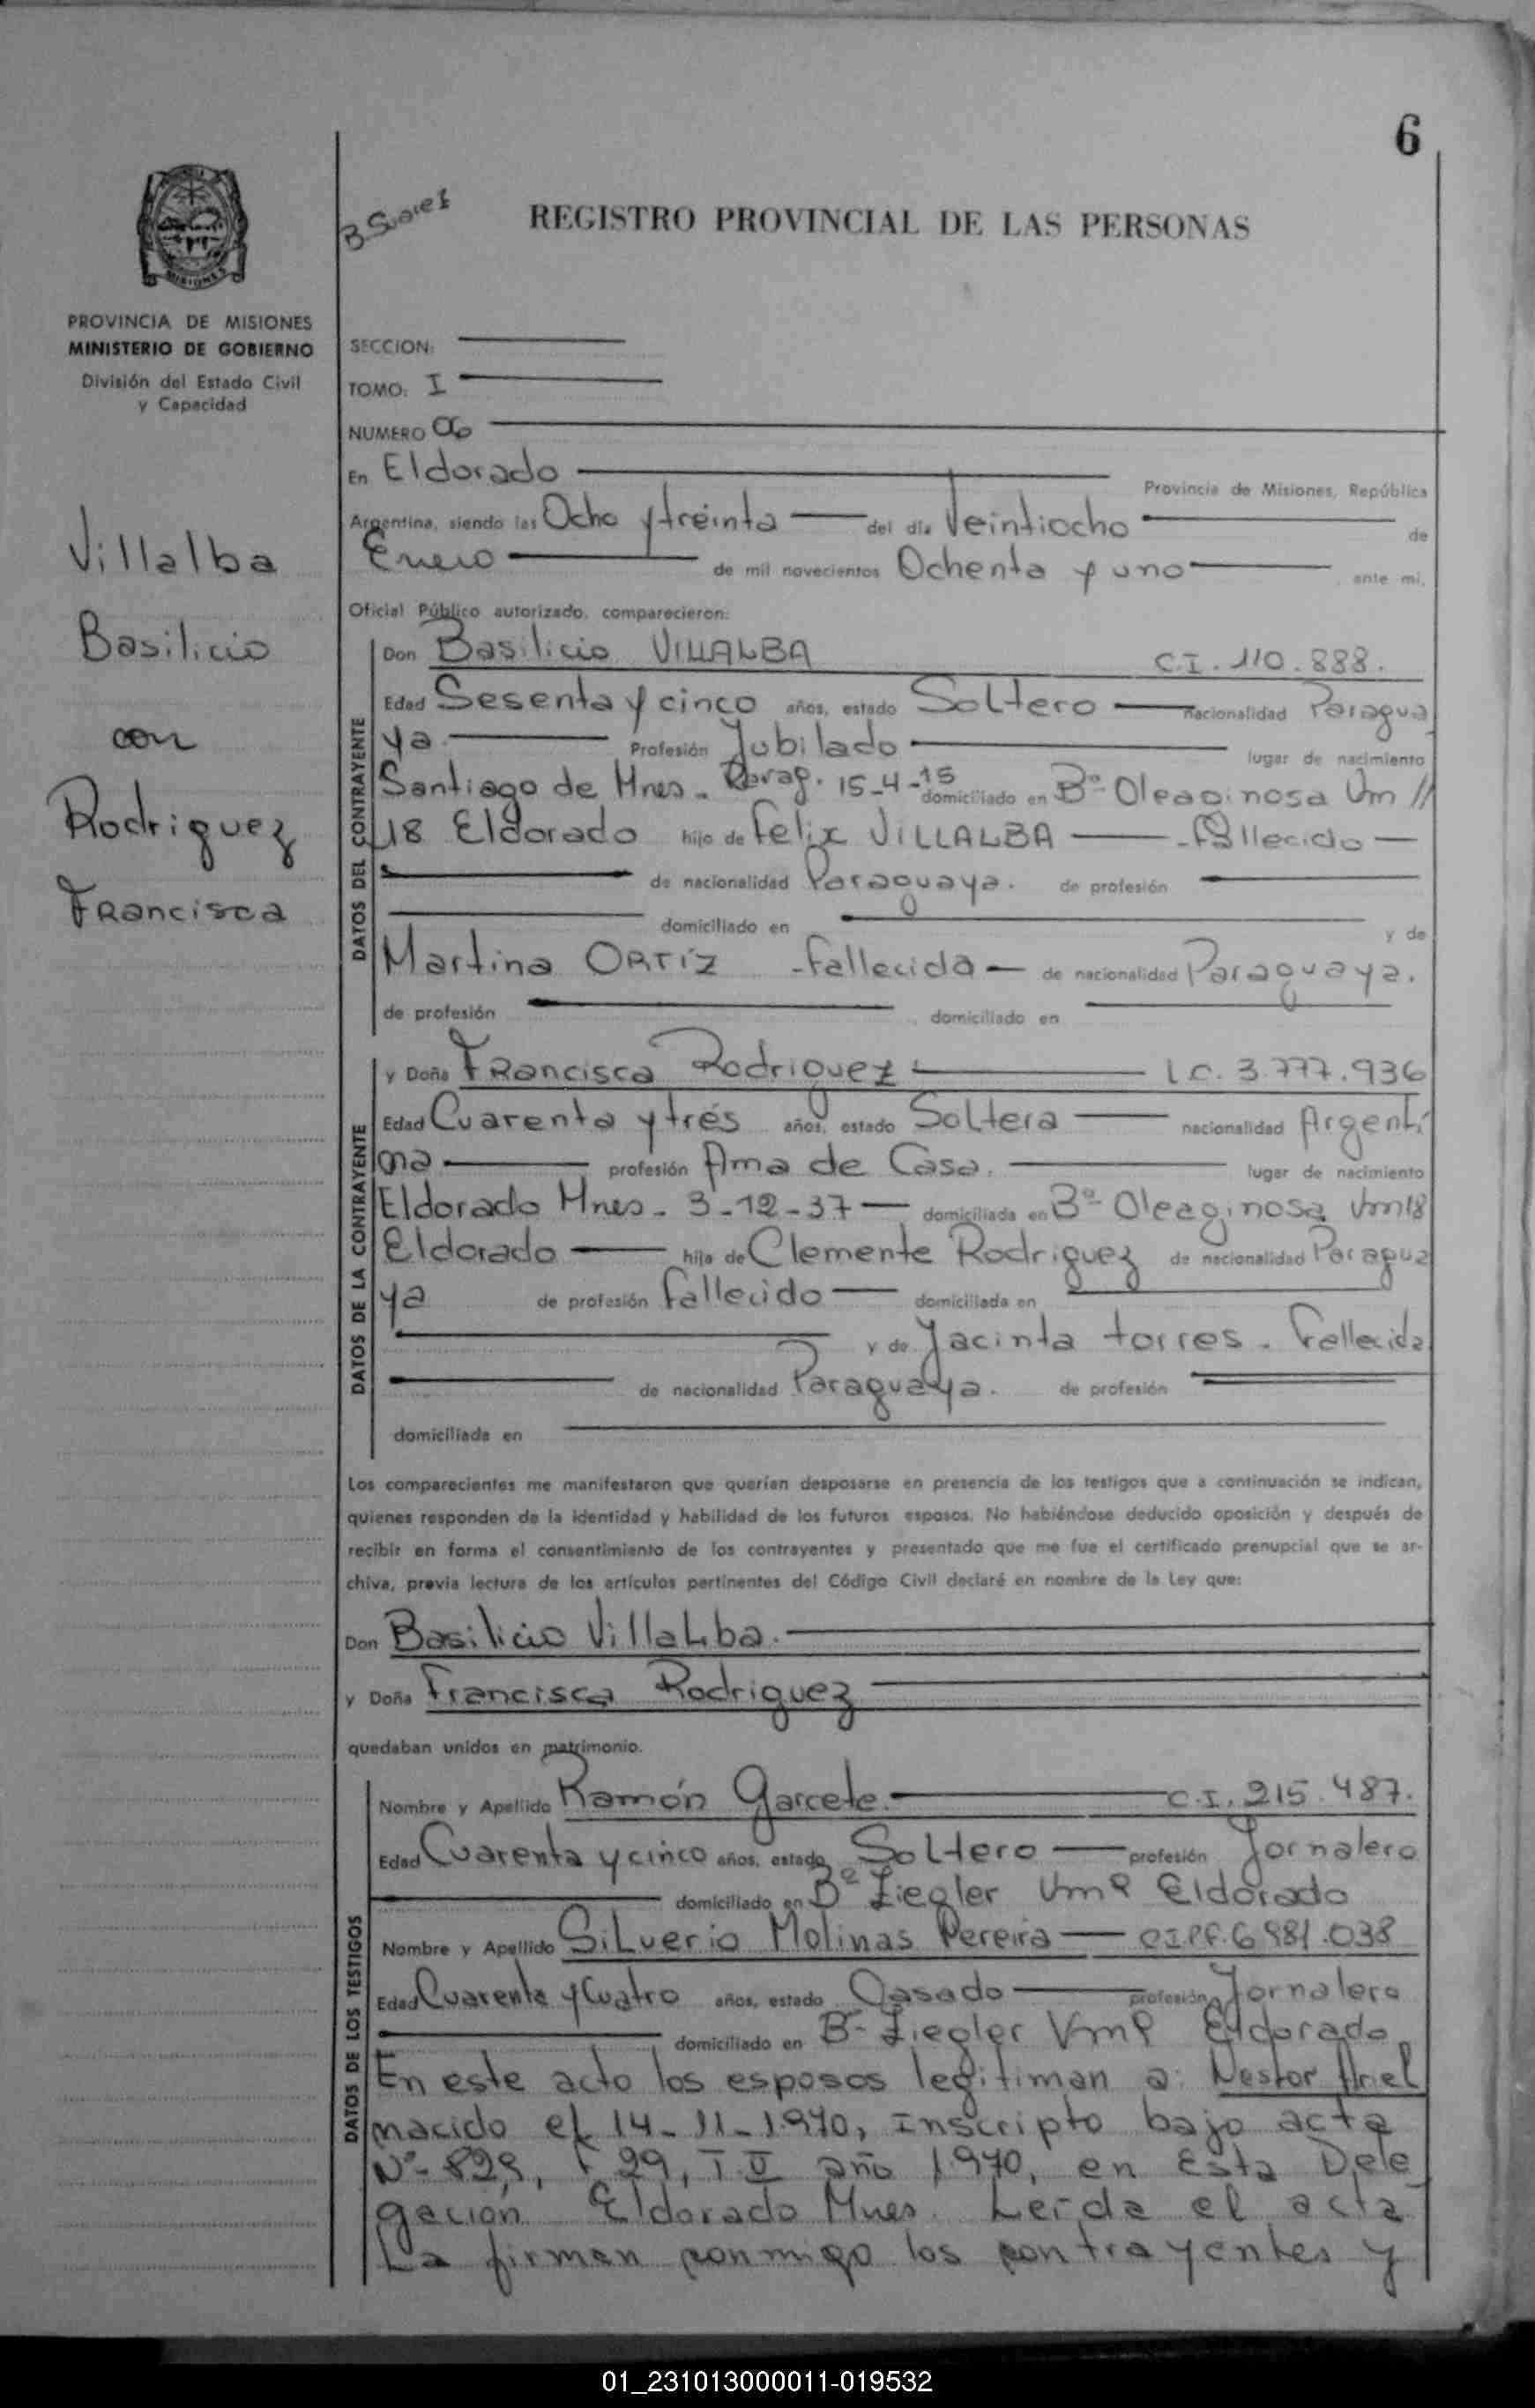 6
B. Suarez
REGISTRO PROVINCIAL DE LAS PERSONAS
MISIONES
PROVINCIA DE MISIONES
MINISTERIO DE GOBIERNO
División del Estado Civil
y Capacidad
Villalba
Basilicio
con
Rodriguez
Francisca
SECCION:
TOMO: I
NUMERO 06
En Eldorado Provincia de Misiones, República
Argentina, siendo las Ocho y treinta del día Veintiocho de
Enero de mil novecientos Ochenta y uno ante mi,
Oficial Público autorizado, comparecieron:
DATOS DEL CONTRAYENTE
Don Basilicio VILLALBA C.I. 110.888.
Edad Sesenta y cinco años, estado Soltero nacionalidad Paragua
ya Profesión Jubilado lugar de nacimiento
Santiago de Mnes. Parag. 15-4-15 domiciliado en Bº Oleaginosa Km //
18 Eldorado hijo de Felix VILLALBA - Fallecido -
de nacionalidad Paraguaya. de profesión
domiciliado en y de
Martina ORTIZ - Fallecida - de nacionalidad Paraguaya.
de profesión domiciliado en
DATOS DE LA CONTRAYENTE
y Doña Francisca Rodriguez L.C. 3.777.936
Edad Cuarenta y trés años, estado Soltera nacionalidad Argenti
na profesión Ama de Casa. lugar de nacimiento
Eldorado Mnes - 3-12-37 - domiciliada en Bº Oleaginosa Km 18
Eldorado hija de Clemente Rodriguez de nacionalidad Paragua
ya de profesión fallecido domiciliada en
y de Jacinta torres - Fallecida
de nacionalidad Paraguaya. de profesión
domiciliada en
Los comparecientes me manifestaron que querían desposarse en presencia de los testigos que a continuación se indican,
quienes responden de la identidad y habilidad de los futuros esposos. No habiéndose deducido oposición y después de
recibir en forma el consentimiento de los contrayentes y presentado que me fue el certificado prenupcial que se ar-
chiva, previa lectura de los artículos pertinentes del Código Civil declaré en nombre de la Ley que:
Don Basilicio Villalba.
y Doña Francisca Rodriguez
quedaban unidos en matrimonio.
DATOS DE LOS TESTIGOS
Nombre y Apellido Ramón Garcete. C.I. 215.487.
Edad Cuarenta y cinco años, estado Soltero profesión Jornalero
domiciliado en Bº Ziegler Km 9 Eldorado
Nombre y Apellido Silverio Molinas Pereira C.I.P.F. 6.981.038
Edad Cuarenta y Cuatro años, estado Casado profesión Jornalero
domiciliado en Bº Ziegler Km 9 Eldorado
En este acto los esposos legitiman a: Nestor Ariel
nacido el 14-11-1970, Inscripto bajo acta
Nº 829, F 29, T II año 1970, en Esta Dele
gación Eldorado Mnes. Leída el acta
La firman conmigo los contrayentes y
01_231013000011-019532